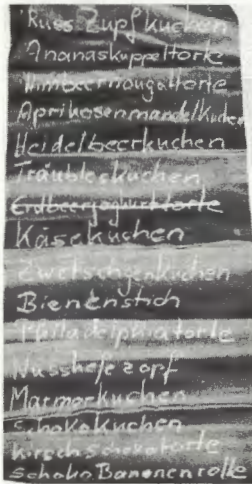 Russ. Zupfkuchen
Ananaskuppeltorte
Himbeernougattorte
Aprikosenmandelkuchen
Heidelbeerkuchen
Träubleskuchen
Erdbeerjoghurttorte
Käsekuchen
Zwetschgenkuchen
Bienenstich
Philadelphiatorte
Nusshefezopf
Marmorkuchen
Schokokuchen
Kirschschokotorte
Schoko Bananenrolle